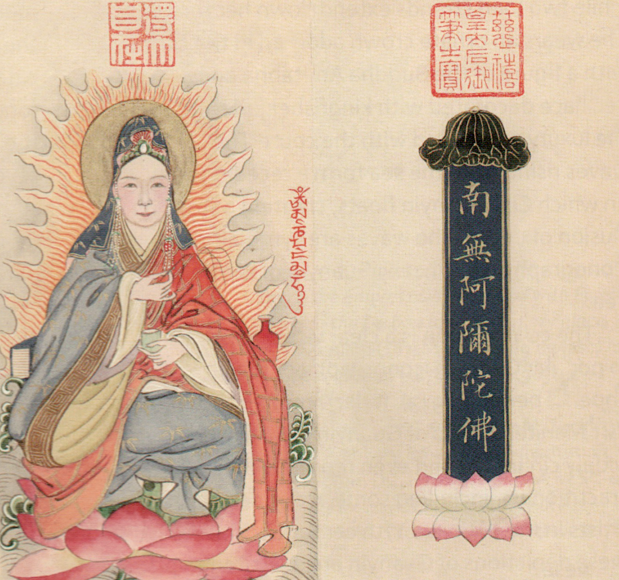 慈禧
皇太后御
筆之寶
南無阿彌陀佛
得大
自在